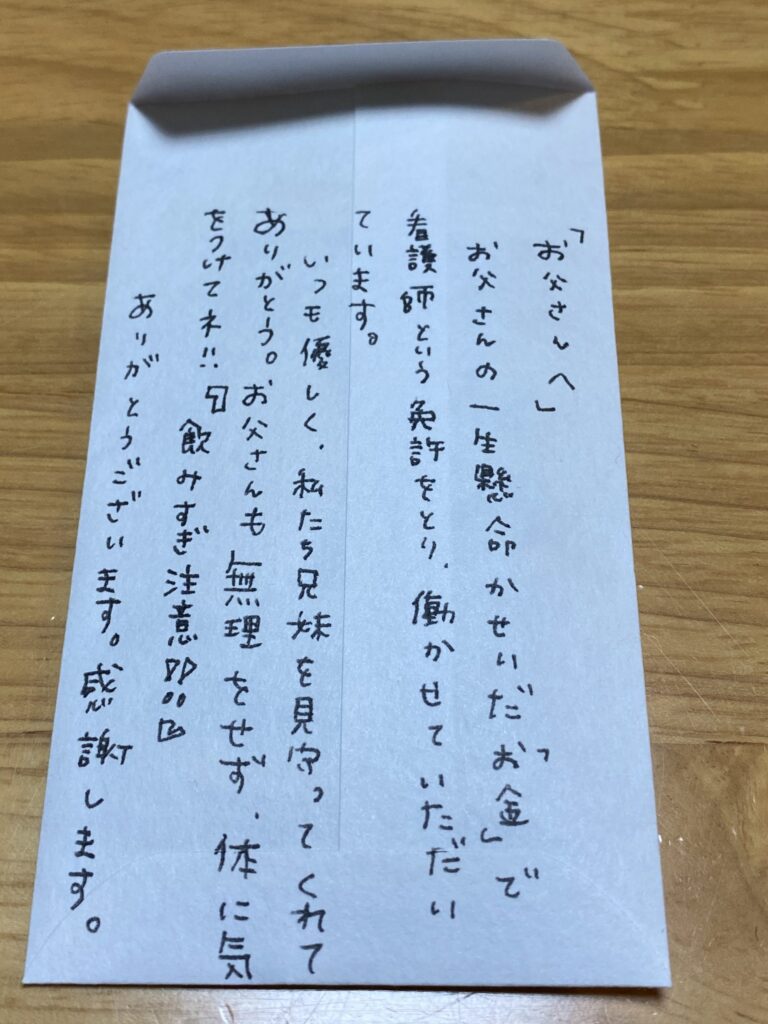 「お父さんへ」
お父さんの一生懸命かせいだ「お金」で
看護師という免許をとり、働かせていただい
ています。
いつも優しく、私たち兄妹を見守ってくれて
ありがとう。お父さんも無理をせず、体に気
をつけてネ!!『飲みすぎ注意!!』
ありがとうございます。感謝します。